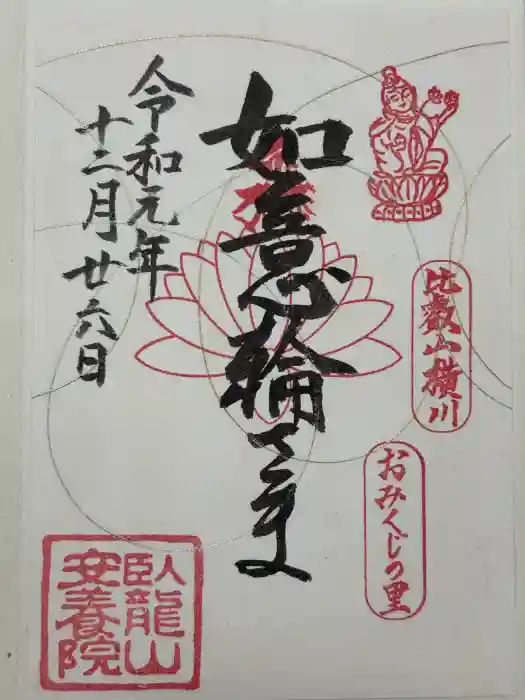 比叡山横川
おみくじの里
如意輪さま
令和元年
十二月廿六日
臥龍山
安養院